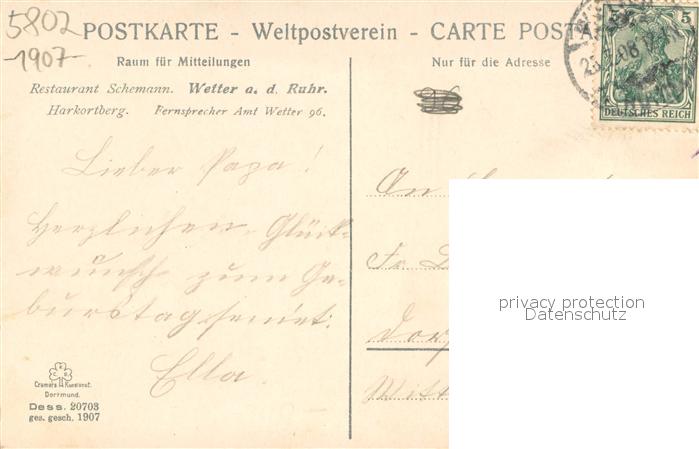 5802
-1907-
POSTKARTE - Weltpostverein - CARTE POSTA
Raum für Mitteilungen
Nur für die Adresse
Restaurant Schemann. Wetter a. d. Ruhr.
Harkortberg. Fernsprecher Amt Wetter 96.
5
DEUTSCHES REICH
Lieber Papa!
Herzlichen Glück-
wunsch zum Ge-
burtstag sendet
Ella.
An
Fr.
Dorf
Witt
privacy protection
Datenschutz
Cramers Kunstanst.
Dortmund.
Dess. 20703
ges. gesch. 1907